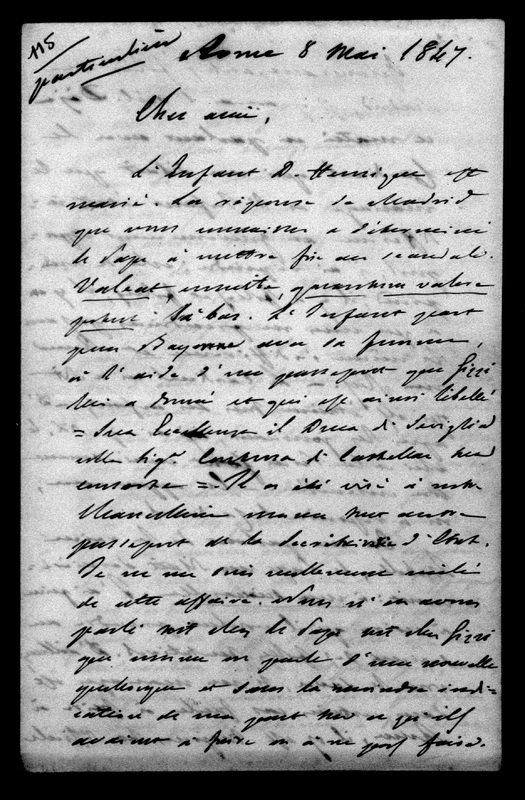 115
particulière
Rome 8 Mai 1847.
Cher ami,
L'Infant D. Henrique est
marié. La réponse de Madrid
que vous connaissez a déterminé
le Pape à mettre fin au scandale.
Valeat ensuite, quantum valere
potest là bas. L'Infant part
pour Bayonne avec sa femme,
à l'aide d'un passeport que Gizzi
lui a donné et qui est ainsi libellé
= Sua Eccellenza il Duca di Siviglia
colla Sigra Contessa di Castella sua
consorte =. Il a été visé à notre
Chancellerie comme tout autre
passeport de la Secrétairerie d'Etat.
Je ne me suis nullement mêlé
de cette affaire. Nous n'en avons
parlé soit chez le Pape soit chez Gizzi
que comme on parle d'une nouvelle
quelconque et sans la moindre indi-
cation de ma part sur ce qu'ils
avaient à faire ou à ne pas faire.